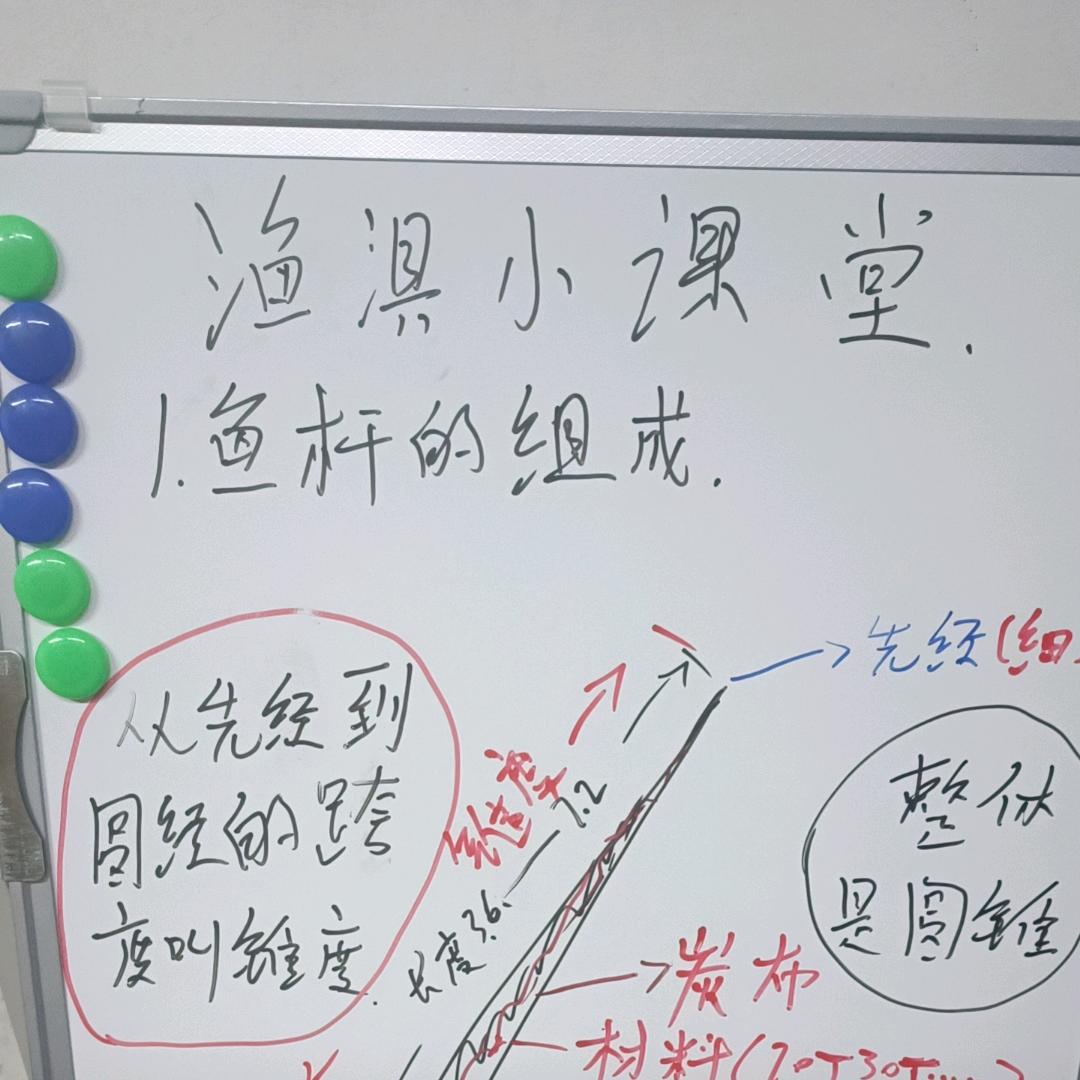 渔具小课堂.
1.鱼杆的组成.
先经(细
从先经到
圆经的跨
度叫锥度.
锥度
长度3.6—7.2
整体
是圆锥
炭布
材料(20T30T....)